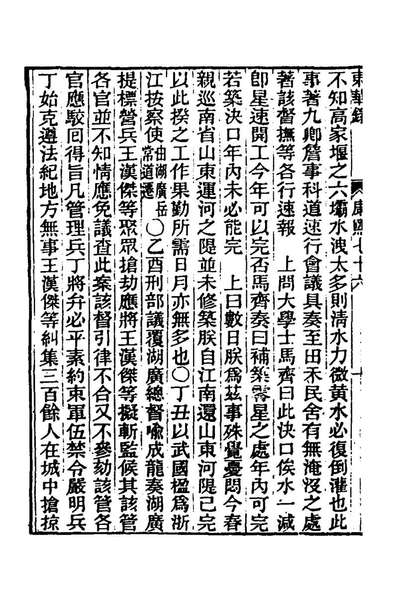 東華錄　康熙七十六
不知高家堰之六壩水洩太多則清水力微黃水必復倒灌也此
事著九卿詹事科道速行會議具奏至田禾民舍有無淹沒之處
著該督撫等各行速報　上問大學士馬齊曰此決口俟水一減
卽星速開工今年可以完否馬齊奏曰補築零星之處年內可完
若築決口年內未必能完　上曰數日朕爲茲事殊覺憂悶今春
親巡南省山東運河之隄並未修築朕自江南還山東河隄已完
以此揆之工作果勤所需日月亦無多也〇丁丑以武國楹爲浙
江按察使由湖廣岳常道遷〇乙酉刑部議覆湖廣總督喩成龍奏湖廣
提標營兵王漢傑等聚眾搶劫應將王漢傑等擬斬監候其該管
各官並不知情應免議查此案該督引律不合又不參劾該管各
官應駁回得旨凡管理兵丁將弁必平素約束軍伍禁令嚴明兵
丁始克遵法紀地方無事王漢傑等糾集三百餘人在城中搶掠